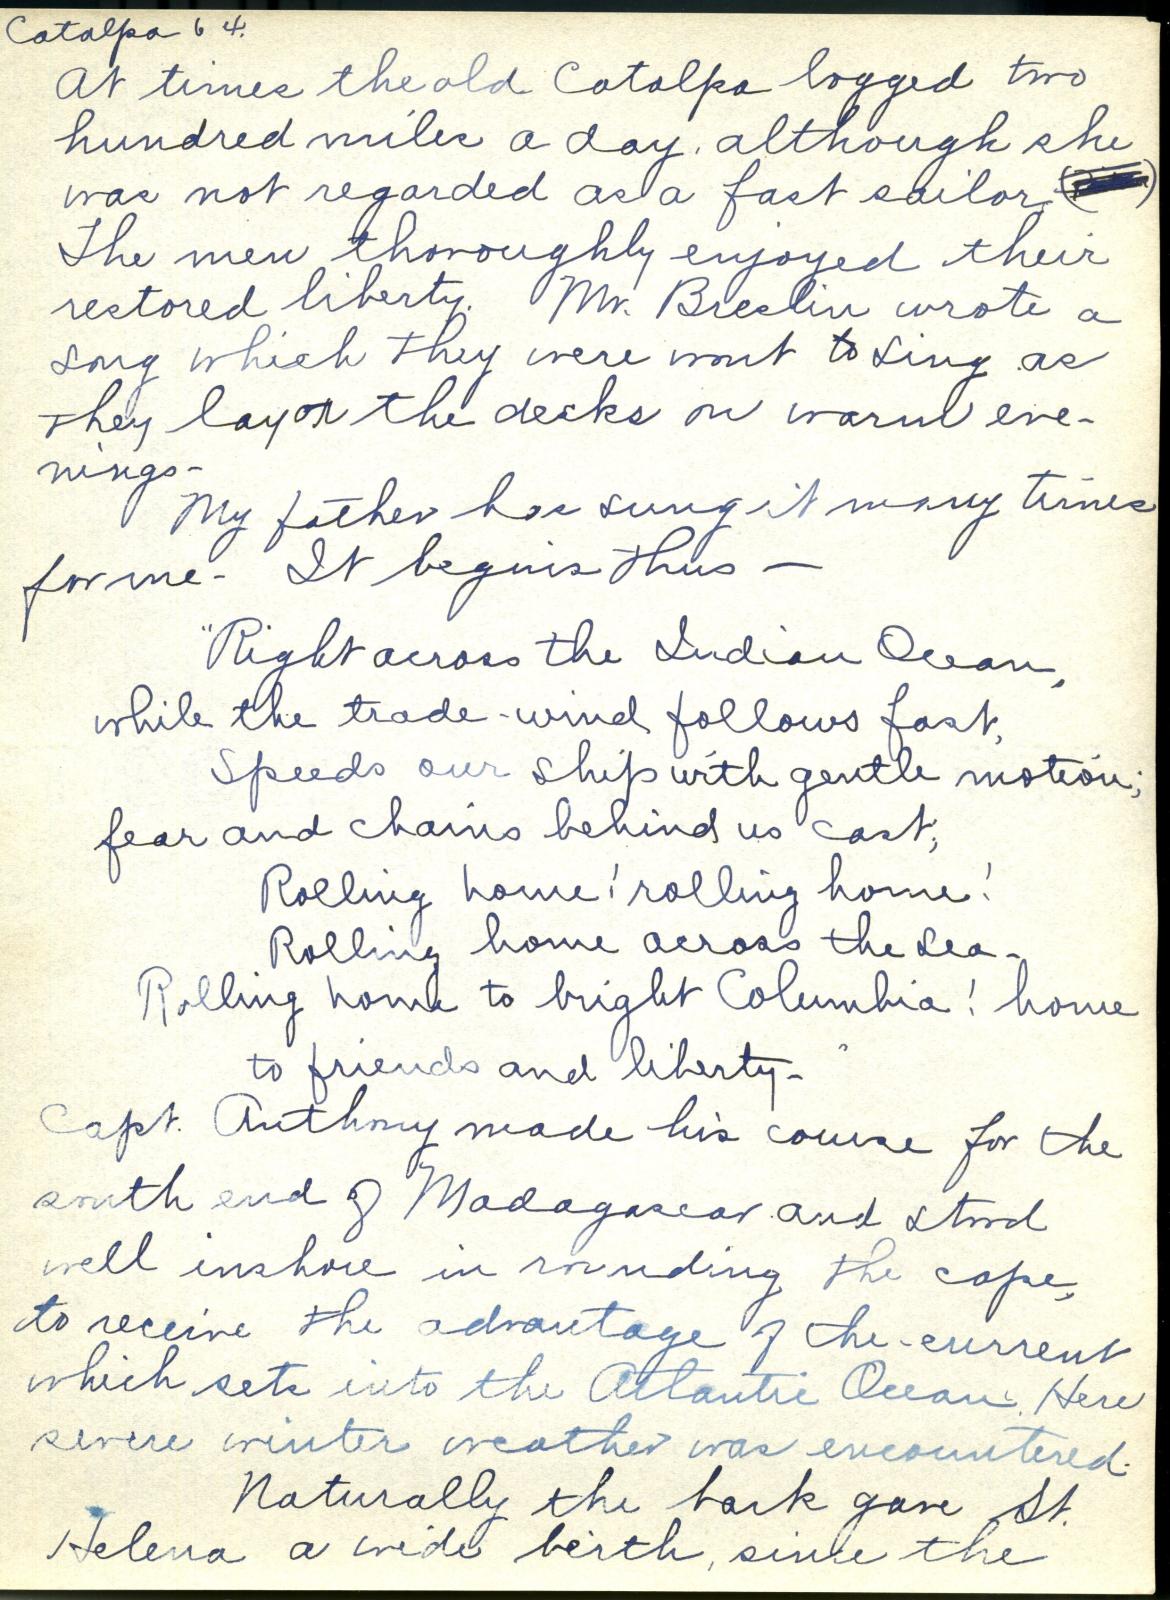 Catalpa 64.
At times the old Catalpa logged two
hundred miles a day, although she
was not regarded as a fast sailor.
The men thoroughly enjoyed their
restored liberty. Mr. Breslin wrote a
song which they were wont to sing as
they lay on the decks on warm eve-
nings-
My father has sung it many times
for me- It begins thus —
"Right across the Indian Ocean,
while the trade-wind follows fast,
Speeds our ship with gentle motion;
fear and chains behind us cast;
Rolling home! rolling home!
Rolling home across the sea-
Rolling home to bright Columbia! home
to friends and liberty-"
Capt. Anthony made his course for the
south end of Madagascar and stood
well inshore in rounding the cape,
to receive the advantage of the current
which sets into the Atlantic Ocean. Here
severe winter weather was encountered.
Naturally the bark gave St.
Helena a wide berth, since the